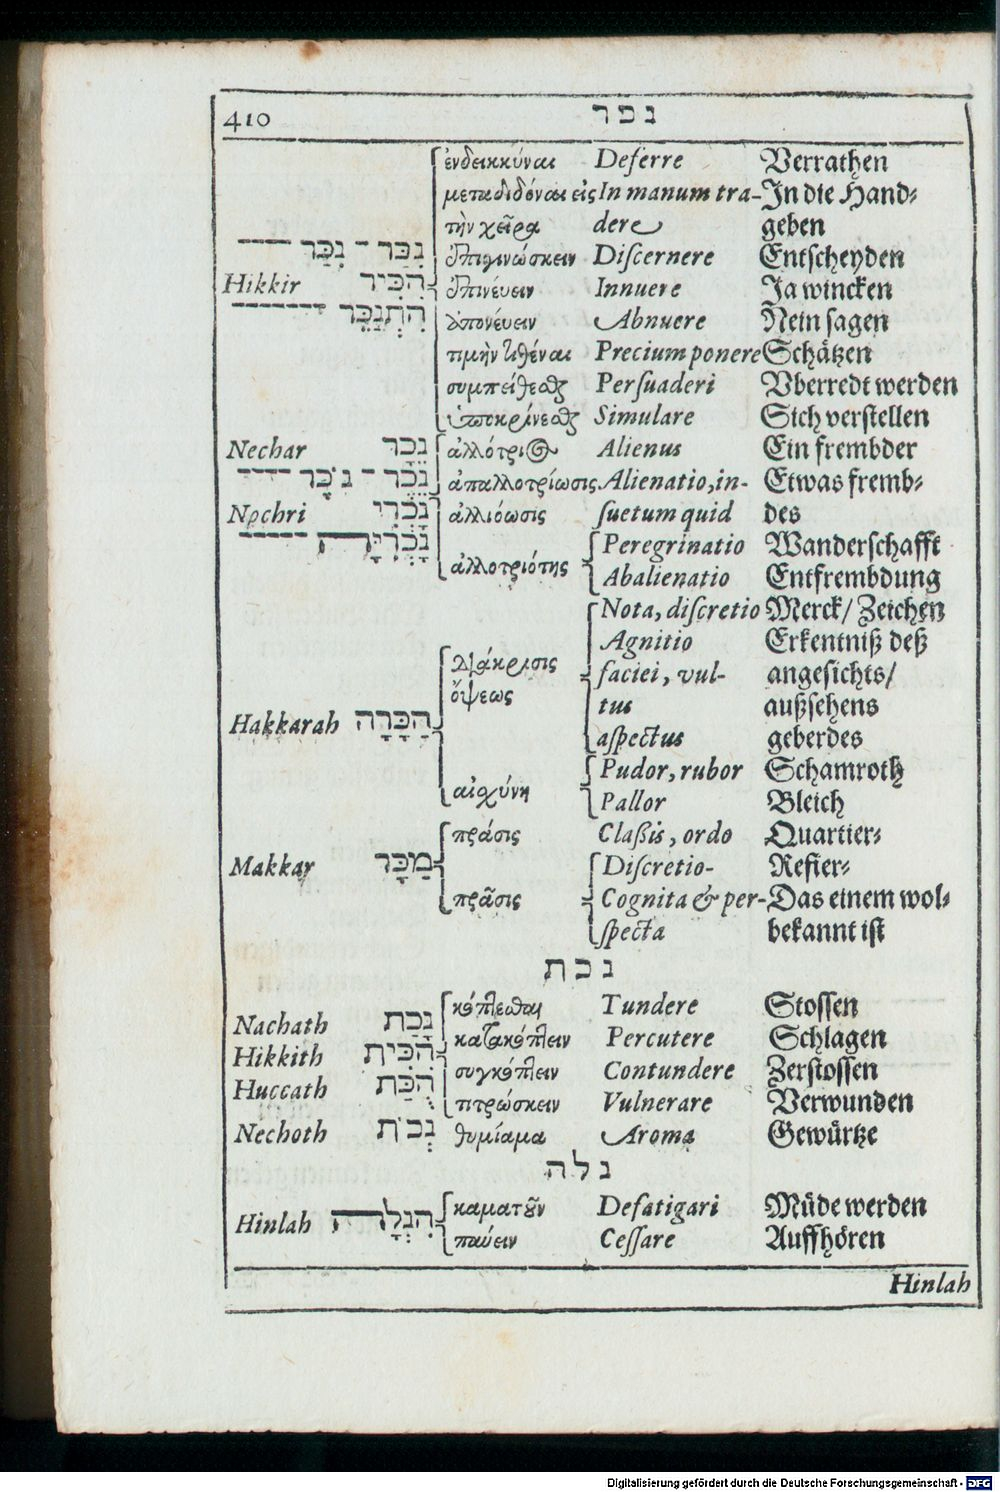 410 נכר
ἐνδεικνύναι Deferre Verrathen
μεταδιδόναι εἰς In manum tra- In die Hand-
τὴν χεῖρα dere geben
נִכַּר - נִכַּר ἐπιγινώσκειν Discernere Entscheyden
Hikkir הִכִּיר ἐπινέυειν Innuere Ja wincken
הִתְנַכֵּר ἀπονέυειν Abnuere Nein sagen
τιμὴν τιθέναι Precium ponere Schätzen
συμπείθεσθαι Persuaderi Vberredt werden
ὑποκρίνεσθαι Simulare Sich verstellen
Nechar נֵכָר ἀλλότριος Alienus Ein frembder
ἀπαλλοτρίωσις Alienatio, in- Etwas fremb-
Nochri נָכְרִי ἀλλιόωσις suetum quid des
נָכְרִיָּה Peregrinatio Wanderschafft
ἀλλοτριότης Abalienatio Entfrembdung
Nota, discretio Merck/ Zeichen
Agnitio Erkentniß deß
διάκρισις faciei, vul- angesichts/
ὄψεως tus außsehens
Hakkarah הַכָּרָה aspectus geberdes
Pudor, rubor Schamroth
αἰσχύνη Pallor Bleich
πρᾶσις Classis, ordo Quartier-
Makkar מַכָּר Discretio- Refier-
πρᾶσις Cognita & per- Das einem wol-
specta bekannt ist
נכת
κόπτεσθαι Tundere Stossen
Nachath נָכַת κατακόπτειν Percutere Schlagen
Hikkith הִכִּית συγκόπτειν Contundere Zerstossen
Huccath הֻכַּת τιτρώσκειν Vulnerare Verwunden
Nechoth נְכֹות θυμίαμα Aroma Gewürtze
נלה
Hinlah הִנְלָה καματοῦν Defatigari Müde werden
παύειν Cessare Auffhören
Hinlah
Digitalisierung gefördert durch die Deutsche Forschungsgemeinschaft - DFG